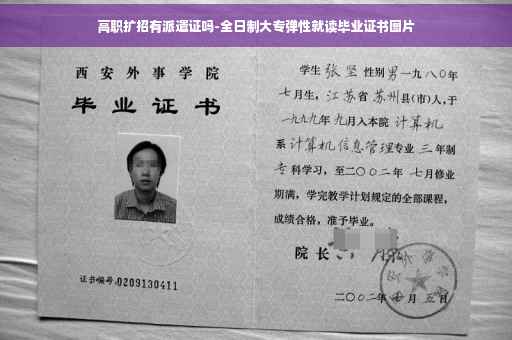 高职扩招有派遣证吗-全日制大专弹性就读毕业证书图片
西安外事学院
毕业证书
证书编号:0209130411
学生张坚性别男一九八〇年
七月生，江苏省苏州县(市)人,于
一九九九年九月入本院计算机
系计算机信息管理专业三年制
专科学习，至二〇〇二年七月修业
期满，学完教学计划规定的全部课程，
成绩合格，准予毕业。
院长
二〇〇二年七月五日